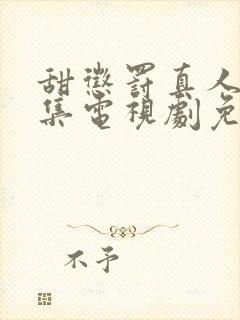 甜懲罰真人
集電視劇免
不予